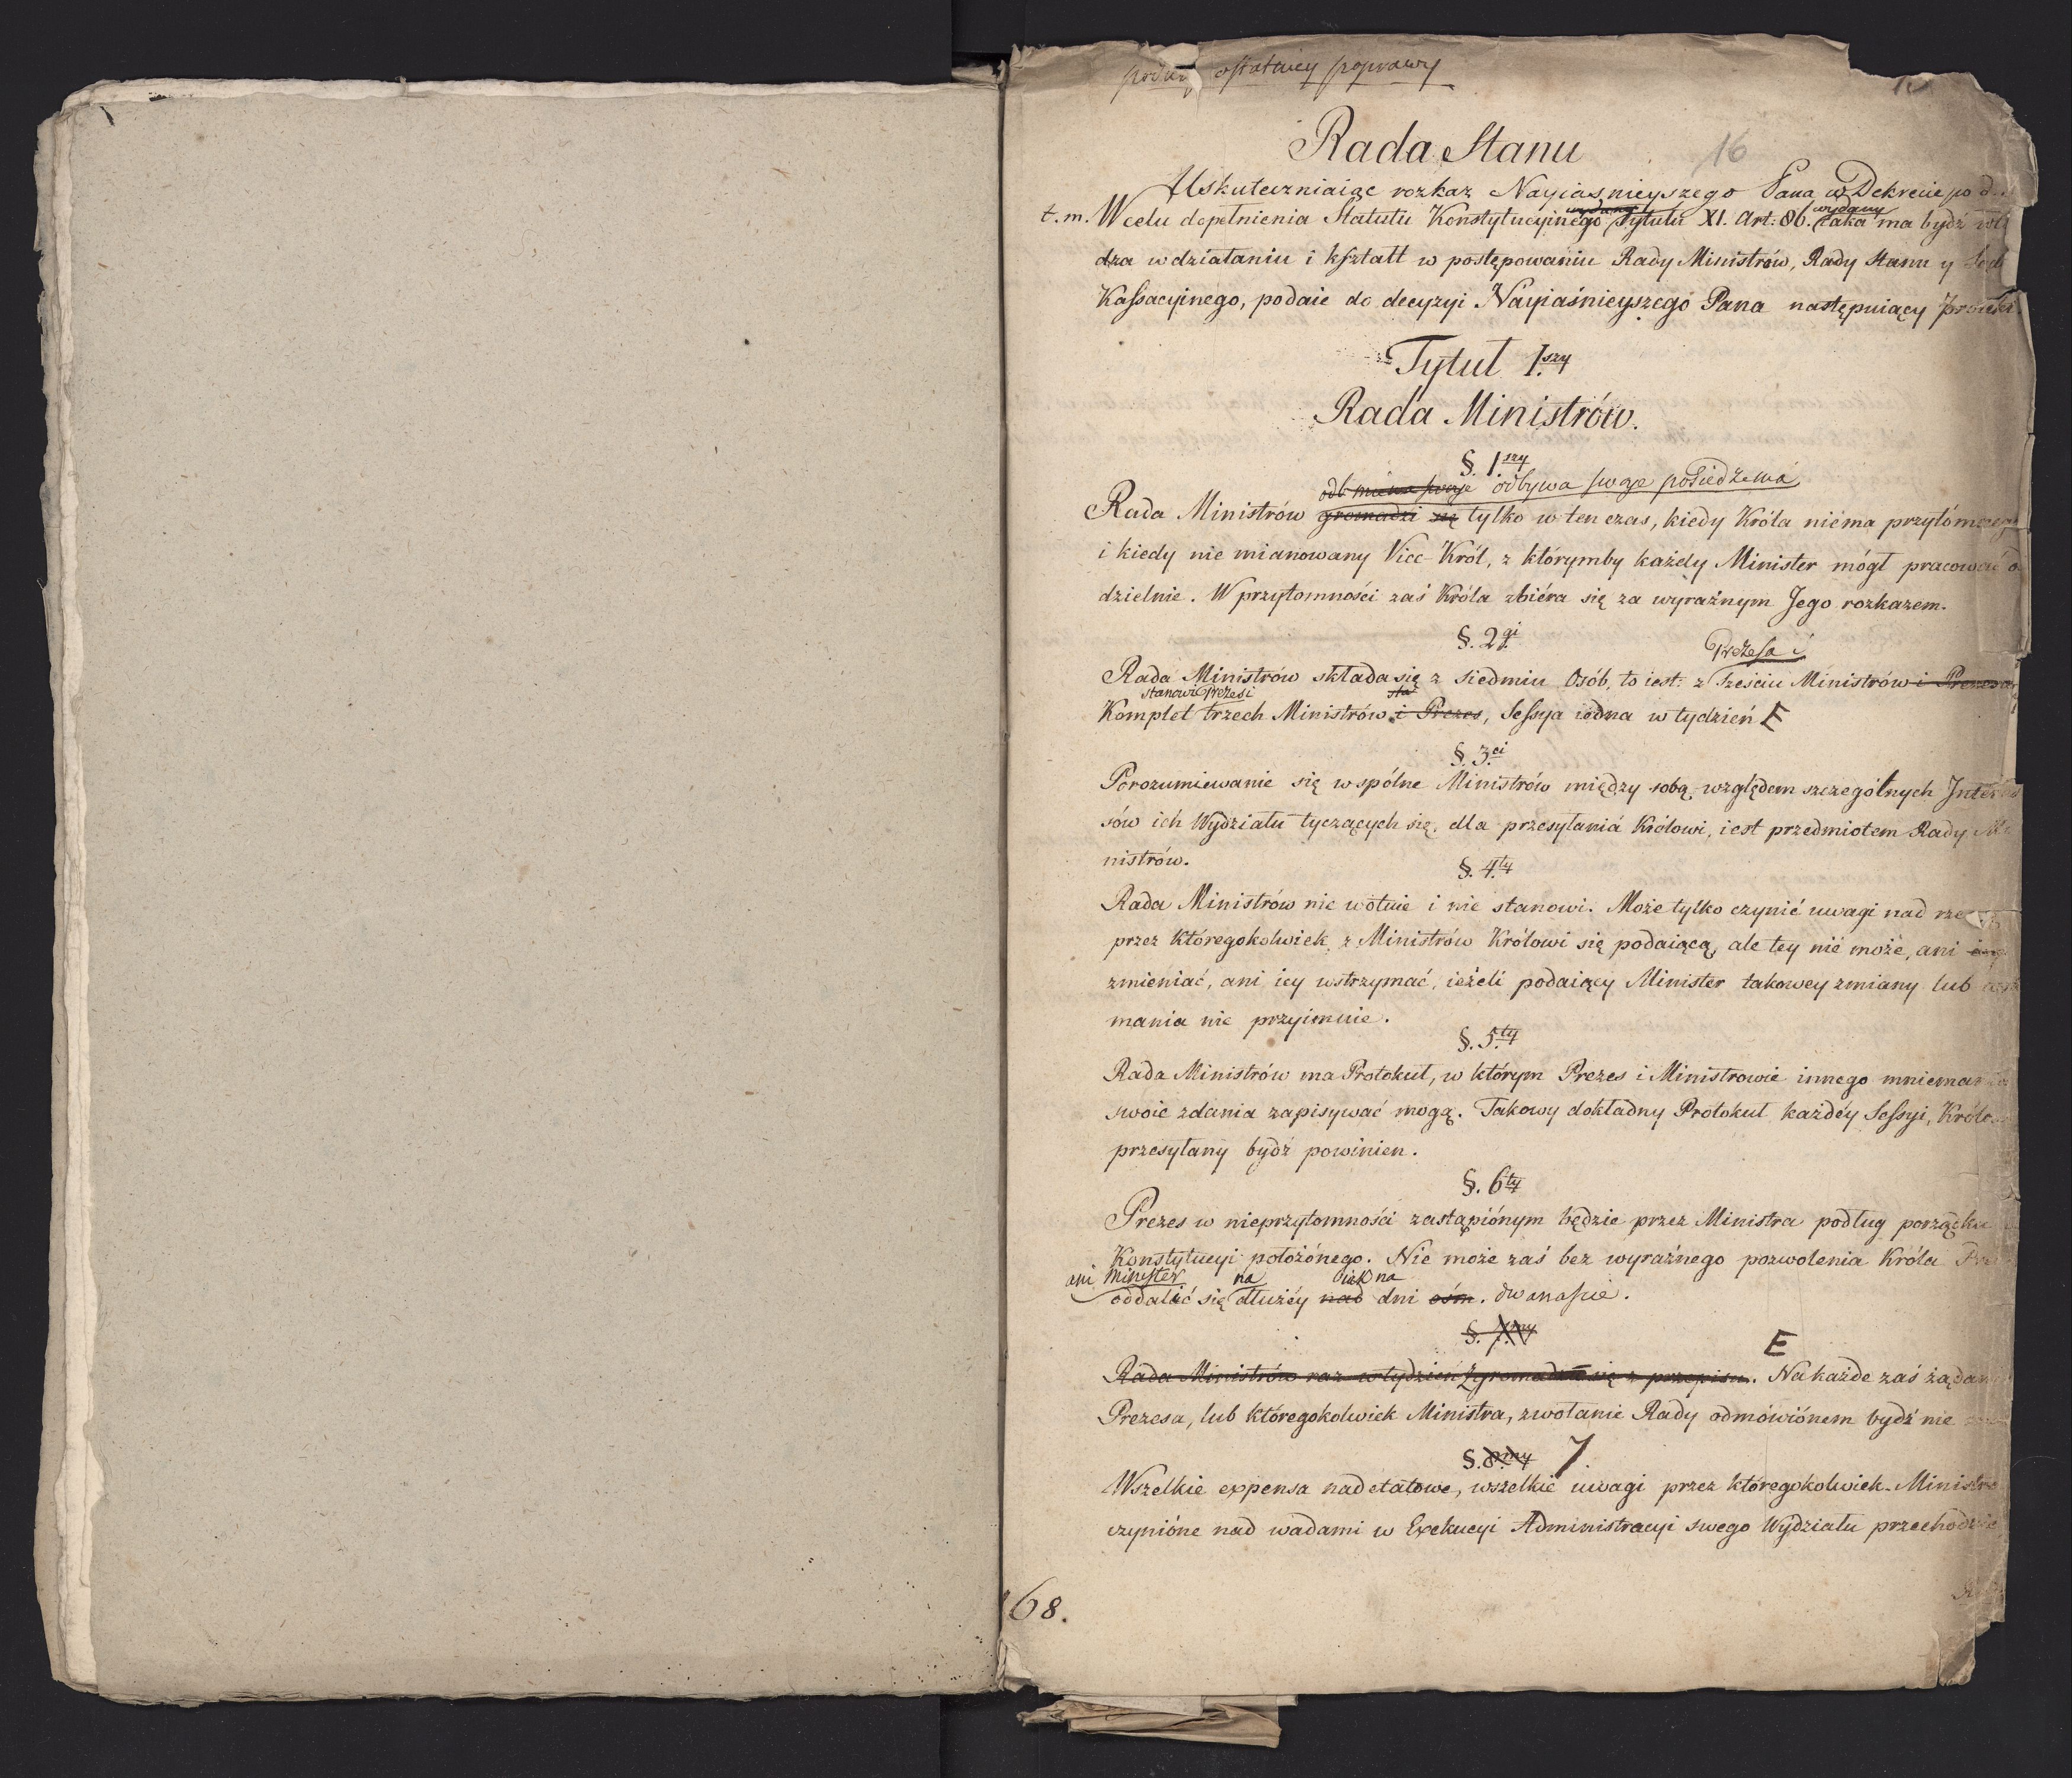 ostatniey poprawy
Rada Stanu
16
Uskuteczniaiąc rozkaz Nayiaśnieyszego Pana w Dekrecie
wydany
t. m. W celu dopełnienia Statutu Konstytucyinego Tytułu XI. Art: 86. iaka ma bydź
dza w działaniu i kształt w postępowaniu Rady Ministrów, Rady Stanu y
Kassacyinego, podaie do decyzyi Nayiaśnieyszego Pana następuiący
Tytuł 1.szy
Rada Ministrów.
§. 1.szy
odbywa swoje posiedzenia
Rada Ministrów gromadzi się tylko w ten czas, kiedy Króla niéma
i kiedy nie mianowany Vice-Król, z którymby każdy Minister mógł pracować
dzielnie. W przytomności zaś Króla zbiéra się za wyraźnym Jego rozkazem.
§. 2.gi
Prezesa i
Rada Ministrów składa się z siedmiu Osób, to iest: z sześciu Ministrów i Prezesa
stanowi Prezes i
Komplet trzech Ministrów i Prezes, Sessya iedna w tydzień E
§. 3.ci
Porozumiewanie się wspólne Ministrów między sobą, względem szczególnych
sów ich Wydziału tyczących się, dla przesyłania Królowi, iest przedmiotem Rady
nistrów.
§. 4.ty
Rada Ministrów nie wotuie i nie stanowi. Może tylko czynić uwagi nad
przez któregokolwiek z Ministrów Królowi się podaiącą, ale tey nie może, ani
zmieniać, ani iey wstrzymać, ieżeli podaiący Minister takowey zmiany lub
mania nie przyimuie.
§. 5.ty
Rada Ministrów ma Protokuł, w którym Prezes i Ministrowie innego
swoie zdania zapisywać mogą. Takowy dokładny Protokuł każdéy Sessyi,
przesyłany bydź powinien.
§. 6.ty
Prezes w nieprzytomności zastąpiónym będzie przez Ministra podług porządku
Konstytucyi położónego. Nie może zaś bez wyraźnego pozwolenia Króla
ani Minister na iak na
oddalać się dłużéy nad dni ośm. dwanaście.
§. 7.my
E
Rada Ministrów raz w tydzień zgromadza się z przepisu. Na każde zaś
Prezesa, lub któregokolwiek Ministra, zwołanie Rady odmówiónem bydź nie
§. 8.my 7.
Wszelkie expensa nadetatowe, wszelkie uwagi przez któregokolwiek Ministra
czynióne nad wadami w Exekucyi Administracyi swego Wydziału
68.